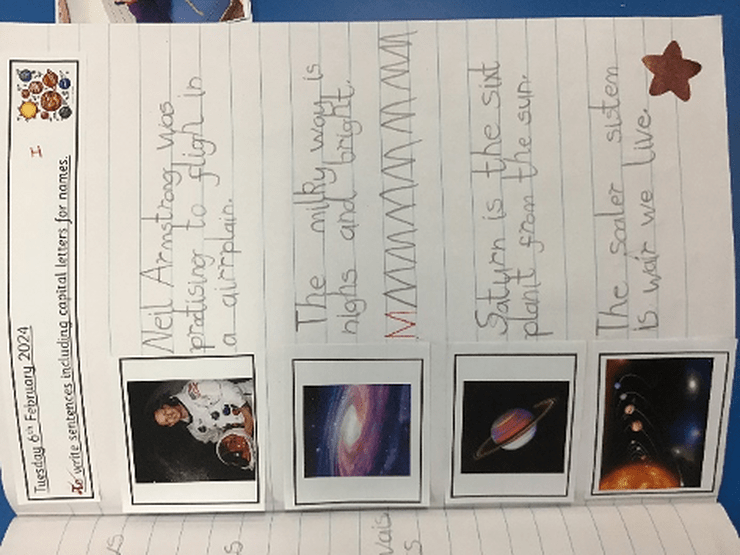 Tuesday 6th February 2024
I
To write sentences including capital letters for names.
Neil Armstrong was
pratising to fligh in
a airrplain.
The milky way is
nighs and bright.
MMMMMMMMMM
Saturn is the sixt
planit from the sun.
The soaler sistem
is wair we live.